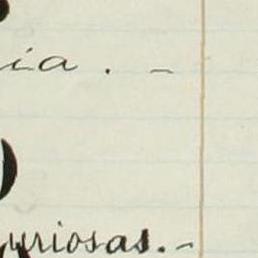 ia. -
uriosas. -